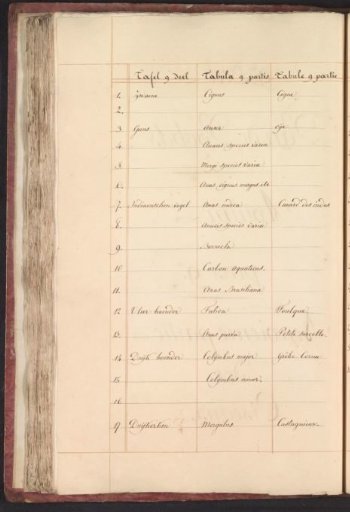 Tafel 9 deel Tabula 9 partis Tabule 9 partie
1. Cignus Cigne
2.
3. Gans Anser oje
4. Anates species varia
5. Mergi species varia
6. Anas, cignus magus etc
7. vogel Anas indica Canard des indes
8. Anates species varia
9. Bernecla
10. Carbon aquaticus
11. Anas Brasiliana
12. hoender Fulica Foulque
13. Anas parva Petite sarcelle
14. hoender Colymbus major
15. Colymbus minor
16
17. Mergulus Castagneux